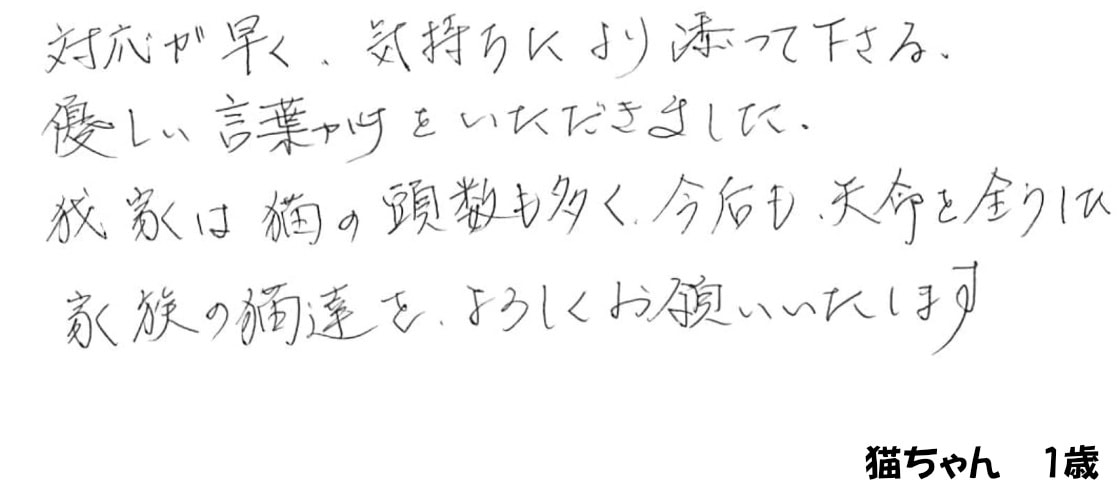 対応が早く、気持ちにより添って下さる、
優しい言葉かけをいただきました、
我家は猫の頭数も多く、今后も、天命を全うした
家族の猫達を、よろしくお願いいたします
猫ちゃん　1歳